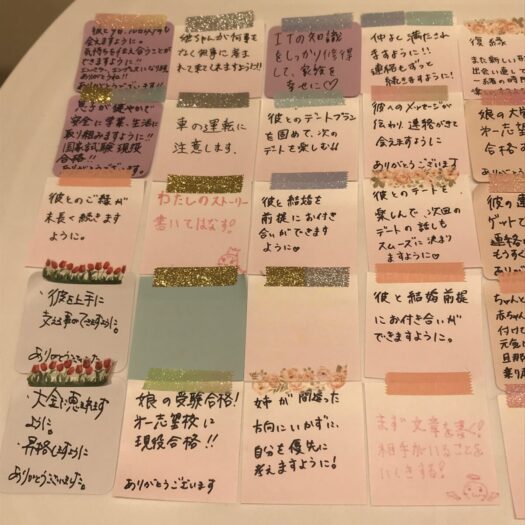 彼と9日、10日、11日
会えますように。
気持ちを伝え合うことが
できますように!!
ありがとうございます!!
赤ちゃんが何事も
なく無事に産ま
れて来てくれますように!!
ITの知識
をしっかり修得
して、家族を
幸せに♡
仲よく満たされ
ますように!!
連絡もずっと
続きますように!
復縁
また新しい
出会い直して
息子が健やかで
安全に学業、生活に
取り組みますように!!
国家試験現役
合格!!
ありがとうございます。
車の運転に
注意します。
彼とのデートプラン
を固めて、次の
デートを楽しむ!!
彼へのメッセージが
伝わり、連絡がきて
会えますように
ありがとうございます
娘の大
第一志望
合格
あり
彼とのご縁が
末長く続きます
ように。
わたしのストーリー
書いてはなす!
彼と結婚を
前提にお付き
合いができます
ように♡
彼とのデートを
楽しんで、次回の
デートの話も
スムーズに決まり
ますように♡
彼の連
ゲットで
連絡
もうすぐ
あり
・彼を上手に
支える事ができますように。
ありがとうございました。
彼と結婚前提
にお付き合いが
できますように。
ちゃんと
赤ちゃん
付けて
元気に
旦那
・大金に恵まれます
ように。
・昇格しますように
ありがとうございました。
娘の受験合格!
第一志望校に
現役合格!!
ありがとうございます
姉が間違った
方向にいかずに、
自分を優先に
考えますように!
まず文章を書く!
相手がいることを
いしきする!